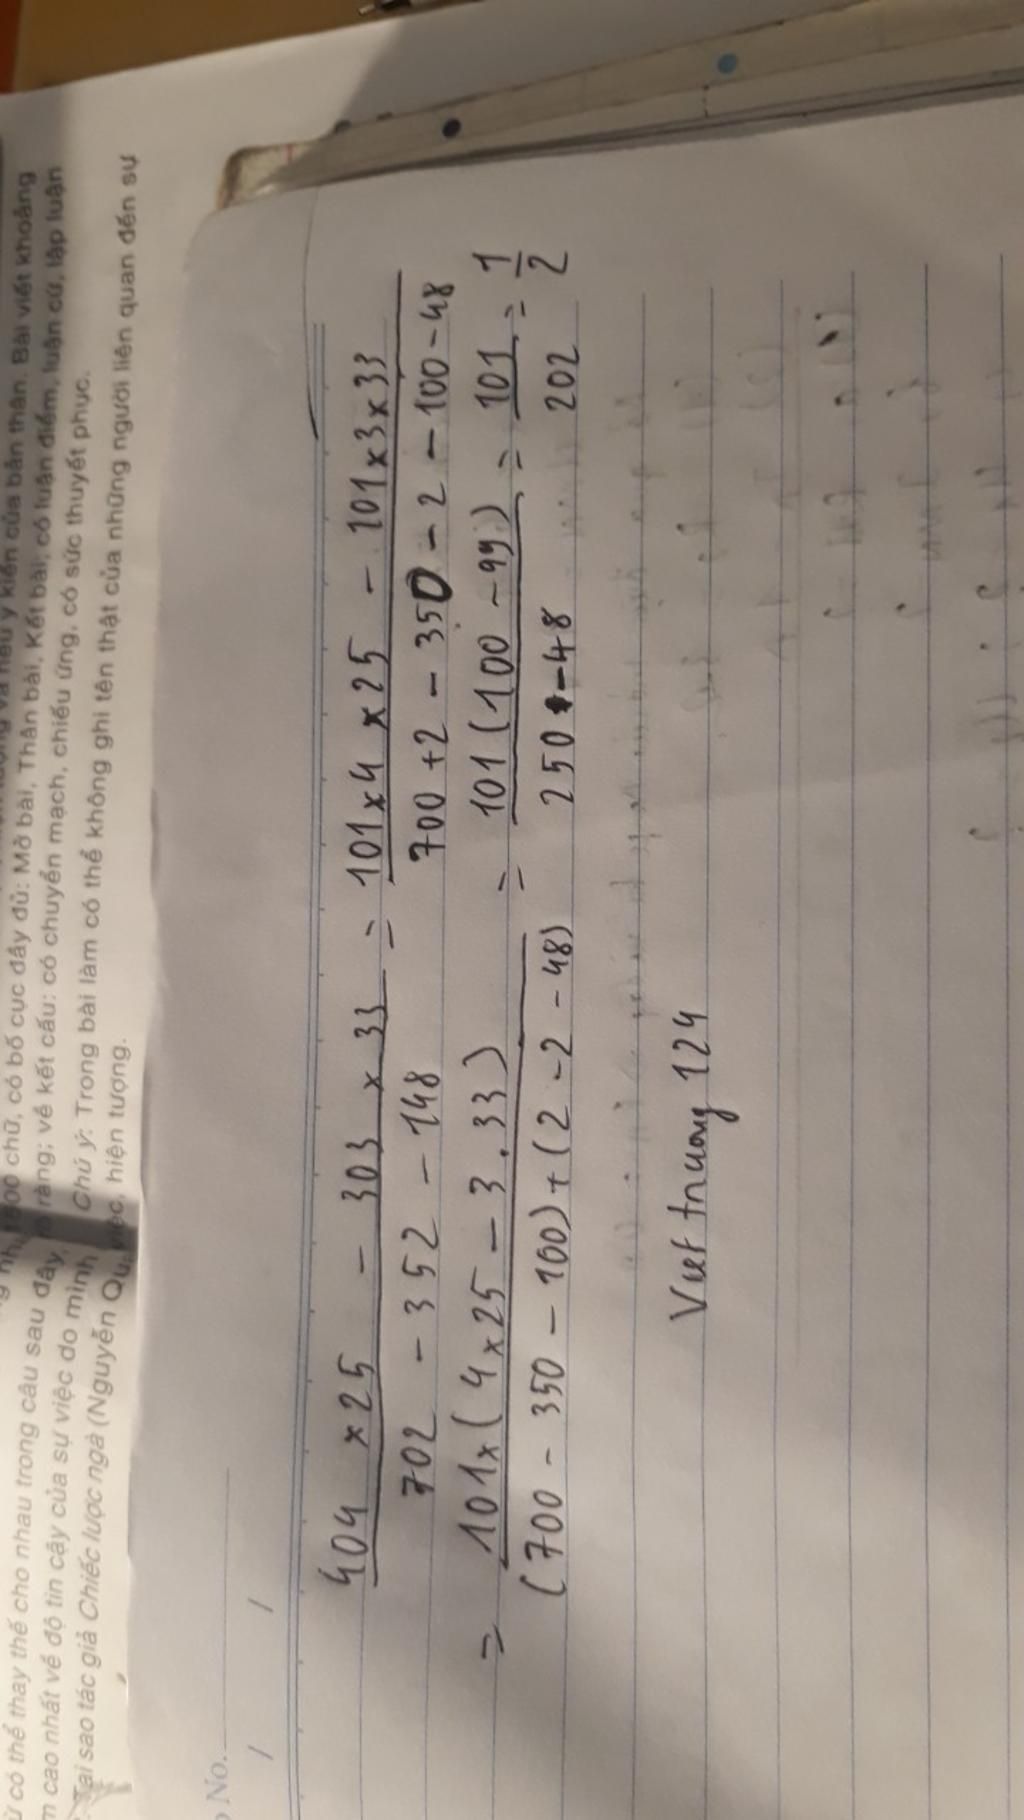 00 chữ, có bố cục đầy đủ: Mở bài, Thân bài, Kết bài; có luận điểm, luận cứ, lập luận
rõ ràng; về kết cấu: có chuyển mạch, chiếu ứng, có sức thuyết phục.
Chú ý: Trong bài làm có thể không ghi tên thật của những người liên quan đến sự
việc, hiện tượng.
có thể thay thế cho nhau trong câu sau đây,
cao nhất về độ tin cậy của sự việc do mình
Tại sao tác giả Chiếc lược ngà (Nguyễn Qu
No.
/ /
404 × 25 − 303 × 33 / 702 − 352 − 148 = 101 × 4 × 25 − 101 × 3 × 33 / 700 + 2 − 350 − 2 − 100 − 48
= 101 × (4 × 25 − 3 . 33) / (700 − 350 − 100) + (2 − 2 − 48) = 101 (100 − 99) / 250 − 48 = 101 / 202 = 1 / 2
Viet truong 124